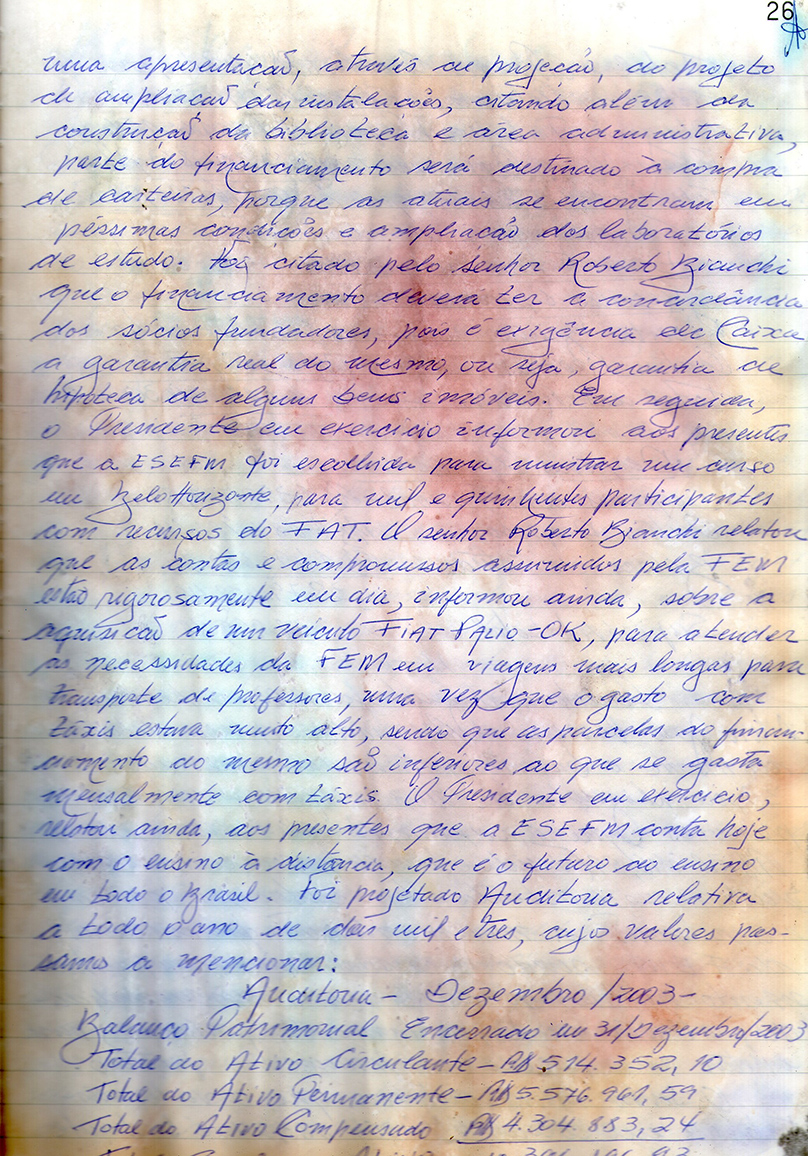 26
uma apresentação, através de projeção, do projeto
de ampliação das instalações, citando além da
construção da biblioteca e área administrativa,
parte do financiamento será destinado à compra
de carteiras, porque as atuais se encontram em
péssimas condições e ampliação dos laboratórios
de estudo. Foi citado pelo senhor Roberto Bianchi
que o financiamento deverá ter a concordância
dos sócios fundadores, pois é exigência da Caixa
a garantia real do mesmo, ou seja, garantia de
hipoteca de alguns bens imóveis. Em seguida,
o Presidente em exercício informou aos presentes
que a ESEFM foi escolhida para ministrar um curso
em Belo Horizonte, para mil e quinhentos participantes
com recursos do FAT. O senhor Roberto Bianchi relatou
que as contas e compromissos assumidos pela FEM
estão rigorosamente em dia, informou ainda, sobre a
aquisição de um veículo FIAT PALIO-OK, para atender
as necessidades da FEM em viagens mais longas para
transporte de professores, uma vez que o gasto com
táxis estava muito alto, sendo que as parcelas do finan-
ciamento do mesmo são inferiores ao que se gasta
mensalmente com táxis. O Presidente em exercício,
relatou ainda, aos presentes que a ESEFM conta hoje
com o ensino à distância, que é o futuro do ensino
em todo o Brasil. Foi projetado Auditoria relativa
a todo o ano de dois mil e três, cujos valores pas-
samos a mencionar:
Auditoria - Dezembro/2003-
Balanço Patrimonial Encerrado em 31/Dezembro/2003
Total do Ativo Circulante - R$ 514.352,10
Total do Ativo Permanente - R$ 5.576.961,59
Total do Ativo Compensado R$ 4.304.883,24